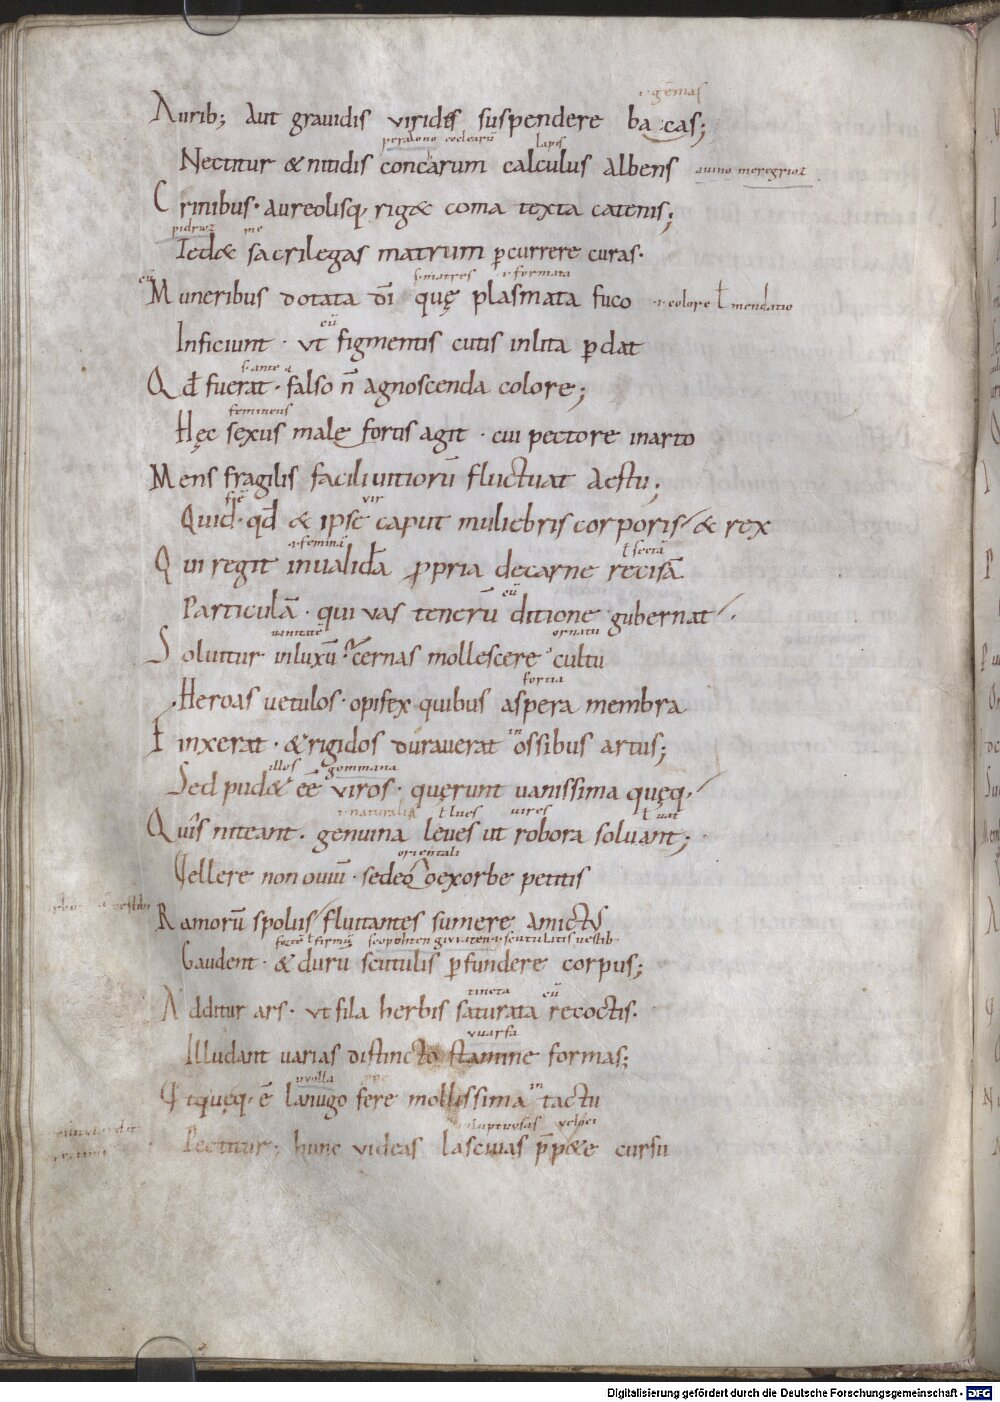 i gēmas
Aurib; aut grauidis virides suspendere bacas;
peralono coclearū lapis
Nectitur & nitidis concarum calculus albens meregrioz
Crinibus · aureolisq, rig& coma texta catenis;
pidrioz me
Ted& sacrilegas matrum pcurrere curas·
eū s·matres i·formata
Muneribus dotata dī quę plasmata fuco i·colore ł mendatio
eū
Inficiunt · vt figmentis cutis inlita pdat
s·ante
Qđ fuerat · falso n̄ agnoscenda colore;
femineus
Hęc sexus male fortis agit · cui pectore inarto
Mens fragilis facili uitiorū fluctuat aestu;
vir
Quid· qđ & ipse caput muliebris corporis & rex
i·feminā ł sectā
Qui regit inualidā ppria decarne recisā
eū
Particulā · qui vas tenerū ditione gubernat
uanitatē ornatu
Soluitur inluxū cernas mollescere cultu
fortia
Heroas uetulos · opifex quibus aspera membra
in
Finxerat · & rigidos durauerat ossibus artus;
illos gommana
Sed pud& eē viros · quęrunt uanissima quęq,
i·naturalia ł lues uires ł uat
Quîs niteant · genuina leues ut robora soluant;
orientali
Uellere non ouiū · sedeoo exorbe petitis
Ramorū spoliis fluitantes sumere amictus
forte ł firmū scutulatis uestib·
Gaudent · & duru scutulis pfundere corpus;
tincta eū
Additur ars · vt fila herbis saturata recoctis·
vuarfa
Illudant uarias distincto stamine formas;
vvolla in
Utquęq, ē lanugo fere mollissima tactu
veloci
Pectitur; hunc videas lasciuas pp&e cursu
Digitalisierung gefördert durch die Deutsche Forschungsgemeinschaft · DFG